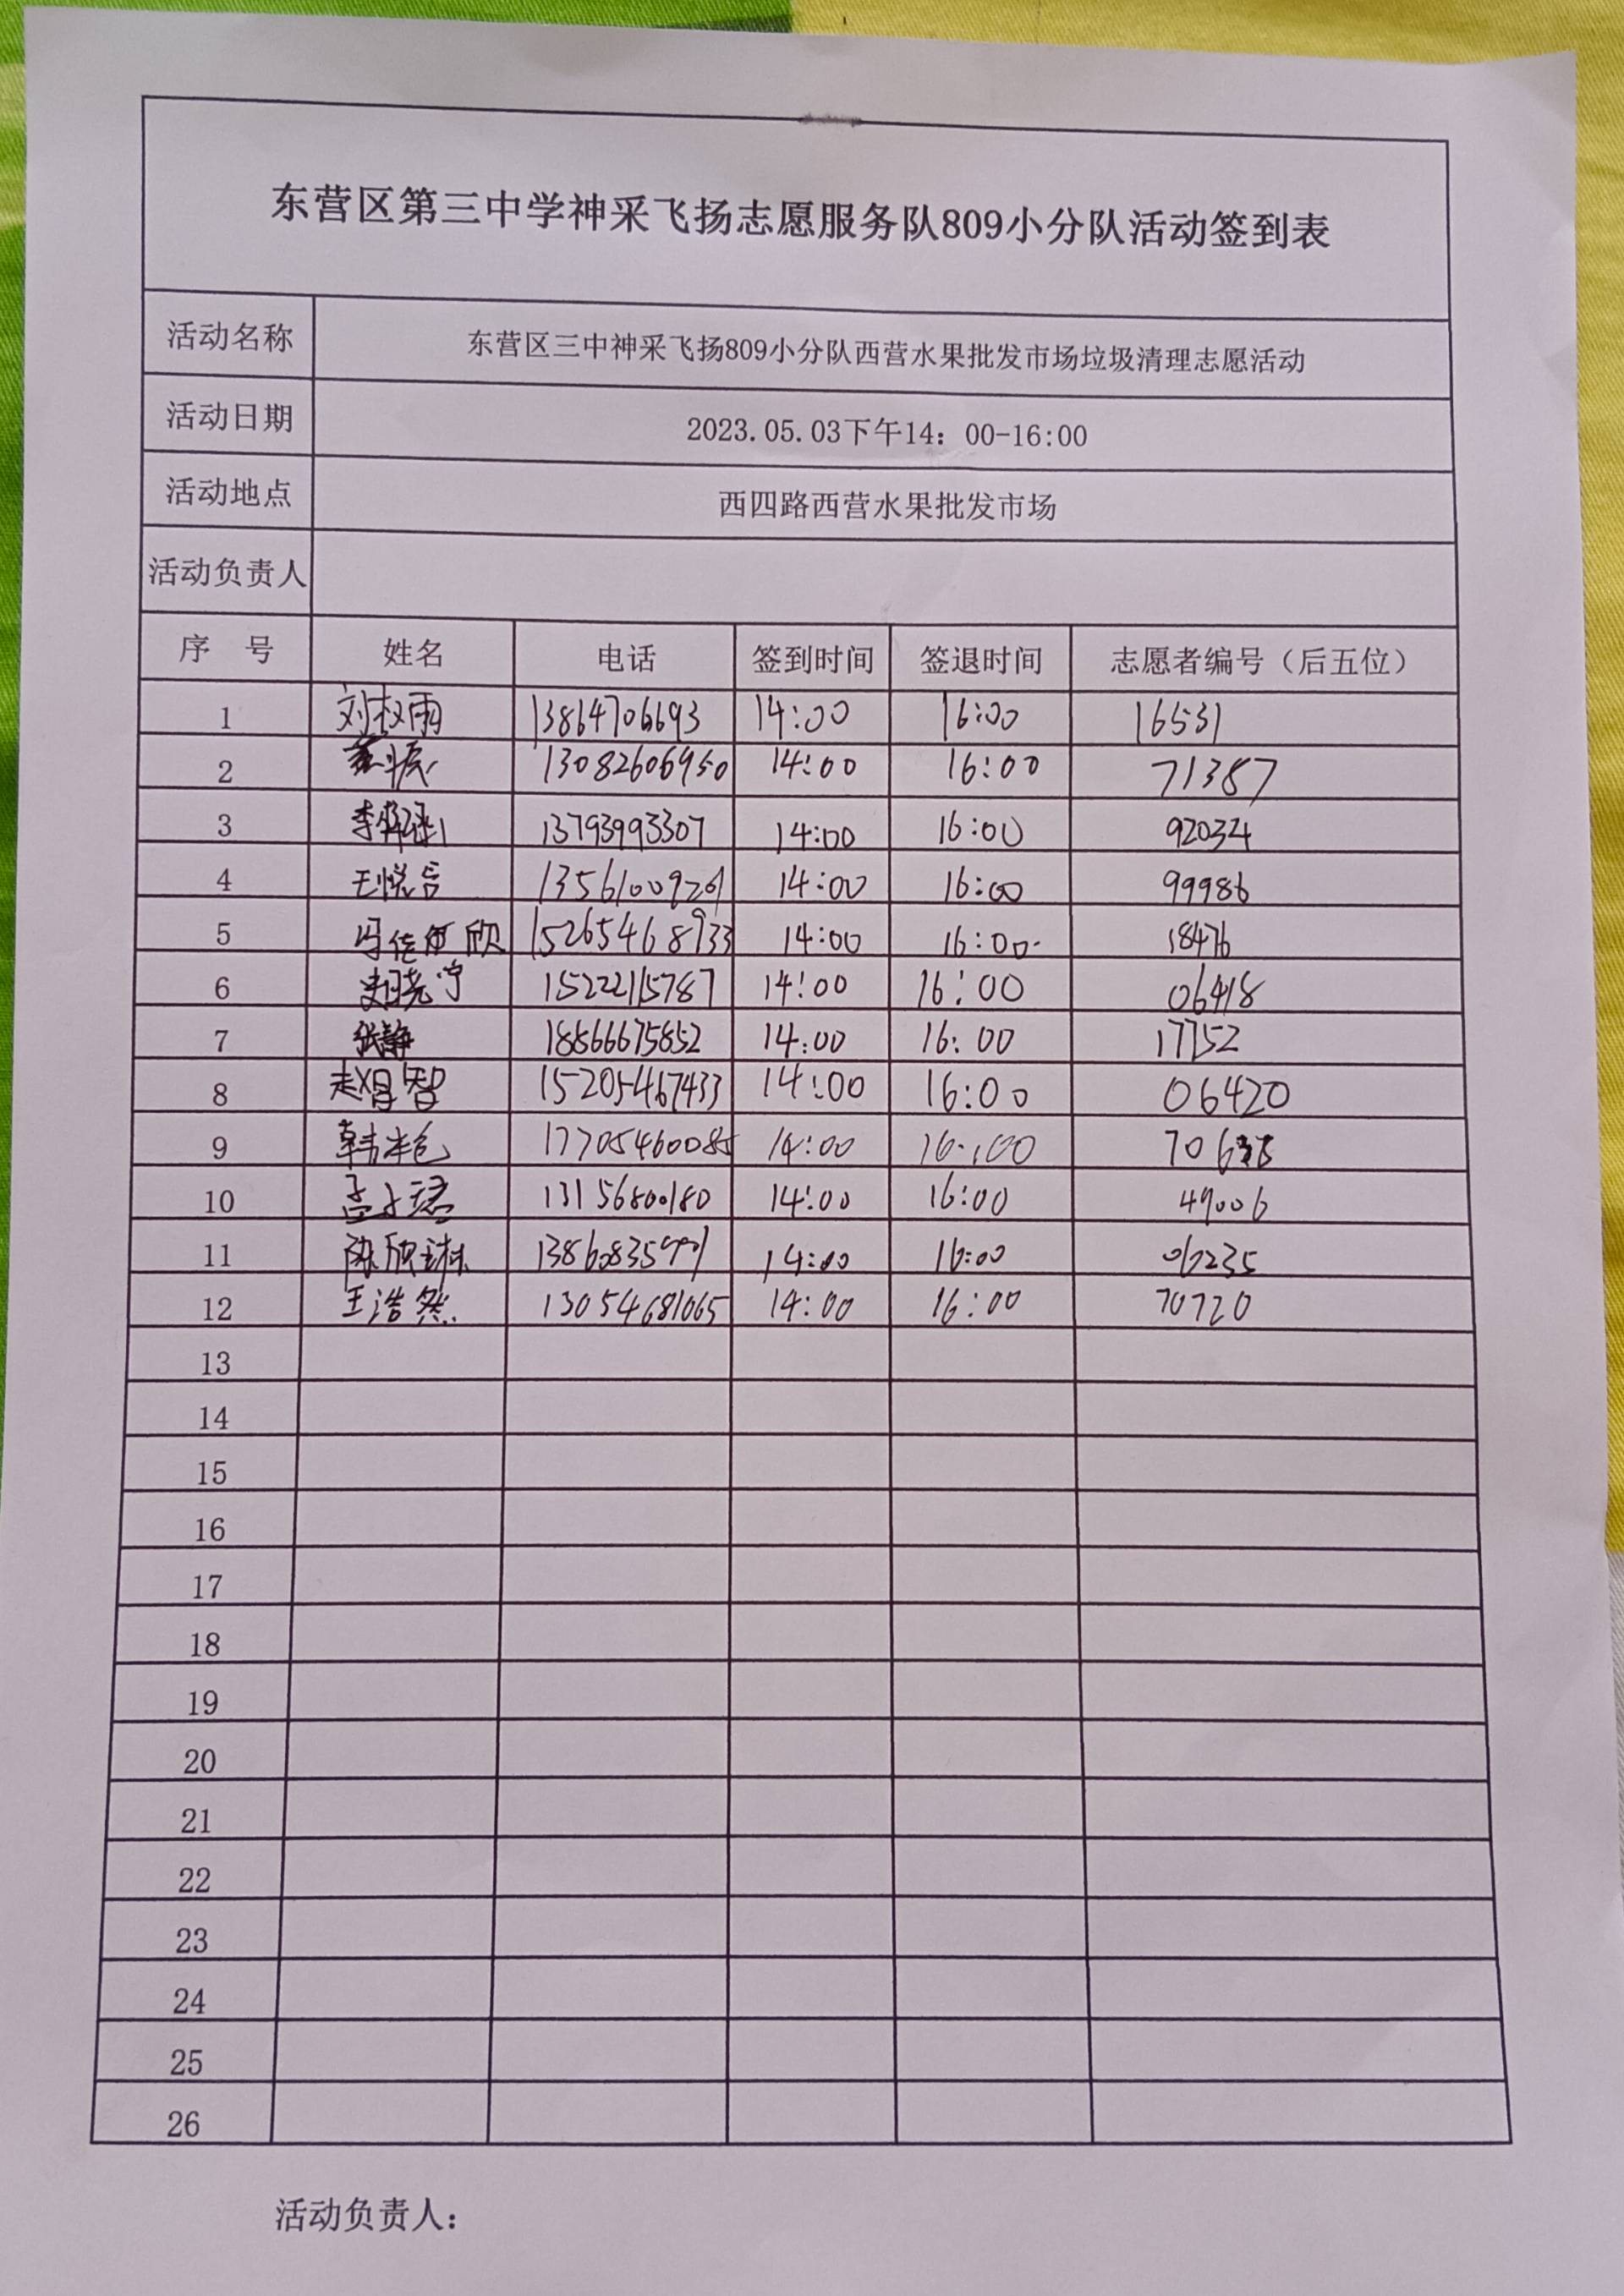 东营区第三中学神采飞扬志愿服务队809小分队活动签到表
活动名称 东营区三中神采飞扬809小分队西营水果批发市场垃圾清理志愿活动
活动日期 2023.05.03下午14：00-16:00
活动地点 西四路西营水果批发市场
活动负责人
序 号 姓名 电话 签到时间 签退时间 志愿者编号（后五位）
1 刘权雨 13864706693 14:00 16:00 16531
2 13082606950 14:00 16:00 71387
3 13793993307 14:00 16:00 92034
4 王悦含 13561009261 14:00 16:00 99986
5 15265468933 14:00 16:00 18476
6 15222115787 14:00 16:00 06418
7 张静 18566675852 14:00 16:00 17752
8 赵昌智 15205467433 14:00 16:00 06420
9 17705460085 14:00 16:00
10 孟子珺 13156800180 14:00 16:00 49006
11 14:00 16:00 06235
12 王浩然 13054681065 14:00 16:00 70720
13
14
15
16
17
18
19
20
21
22
23
24
25
26
活动负责人：